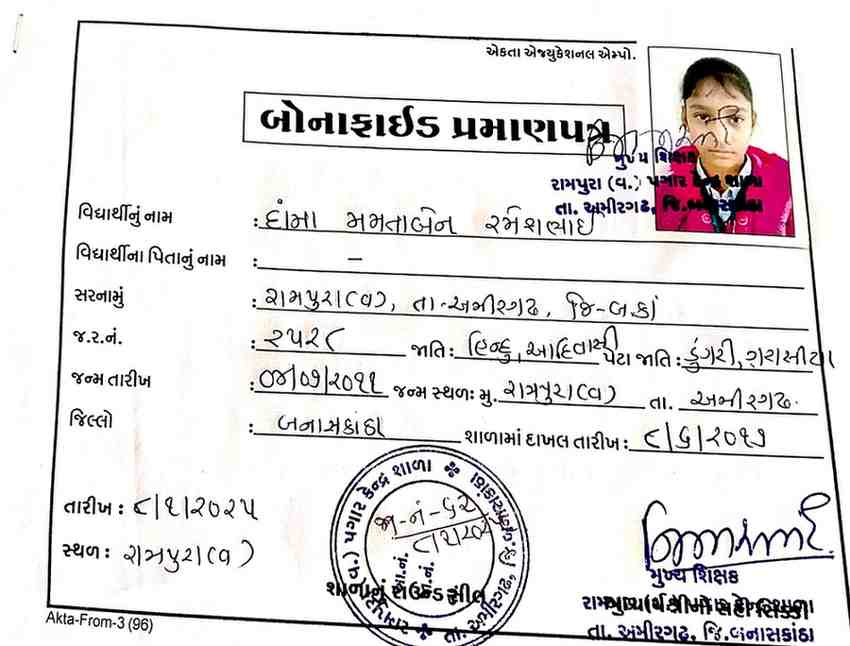 એકતા એજ્યુકેશનલ એમ્પો.
બોનાફાઈડ પ્રમાણપત્ર
મુખ્ય શિક્ષક
રામપુરા (વ.) પગાર કેન્દ્ર શાળા
તા. અમીરગઢ, જિ.બનાસકાંઠા
વિદ્યાર્થીનું નામ : દામા મમતાબેન રમેશભાઈ
વિદ્યાર્થીના પિતાનું નામ : –
સરનામું : રામપુરા(વ), તા-અમીરગઢ, જિ-બ.કાં
જ.ર.નં. : ૨૫૨૮ જાતિ : હિન્દુ, આદિવાસી પેટા જાતિ : ડુંગરી, ગરાસીયા
જન્મ તારીખ : ૦૪/૦૭/૨૦૧૧ જન્મ સ્થળઃ મુ. રામપુરા(વ) તા. અમીરગઢ.
જિલ્લો : બનાસકાંઠા શાળામાં દાખલ તારીખ : ૮/૬/૨૦૧૭
તારીખ : ૮/૧/૨૦૨૫
સ્થળ : રામપુરા(વ)
રામપુરા (વ.) પગાર કેન્દ્ર શાળા
તા. અમીરગઢ, જિ.બનાસકાંઠા
જા-નં-૬૨
જા.નં.
શાળાનું રાઉન્ડ સીલ
મુખ્ય શિક્ષક
રામપુરા (વ.) પગાર કેન્દ્ર શાળા
તા. અમીરગઢ, જિ.બનાસકાંઠા
Akta-From-3 (96)